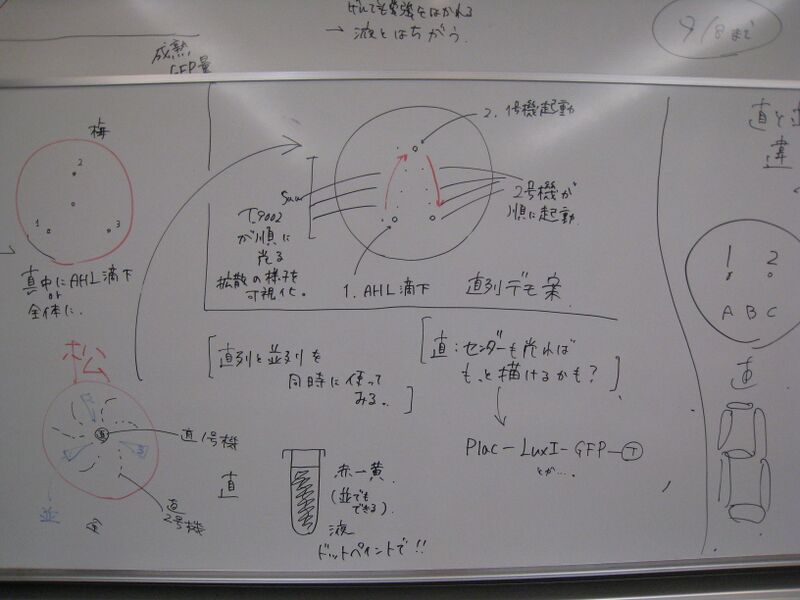 → 液とはちがう.
9/8まで
成熟
GFP量
梅
2
1
3
真中にAHL滴下
or
全体に.
松
直1号機
直2号機
並
2. 1号機起動
2号機が
順に起動.
5mm
T9002
が順に
光る
拡散の様子を
可視化.
1. AHL滴下
直列デモ案
直列と並列を
同時に使って
みる.
直:センダーも光れば
もっと描けるかも?
Plac-LuxI-GFP-T
とか....
直
赤-黄
(並でも
できる).
液
ドットペイントで!!
直と並
違
1
2
A B C
直